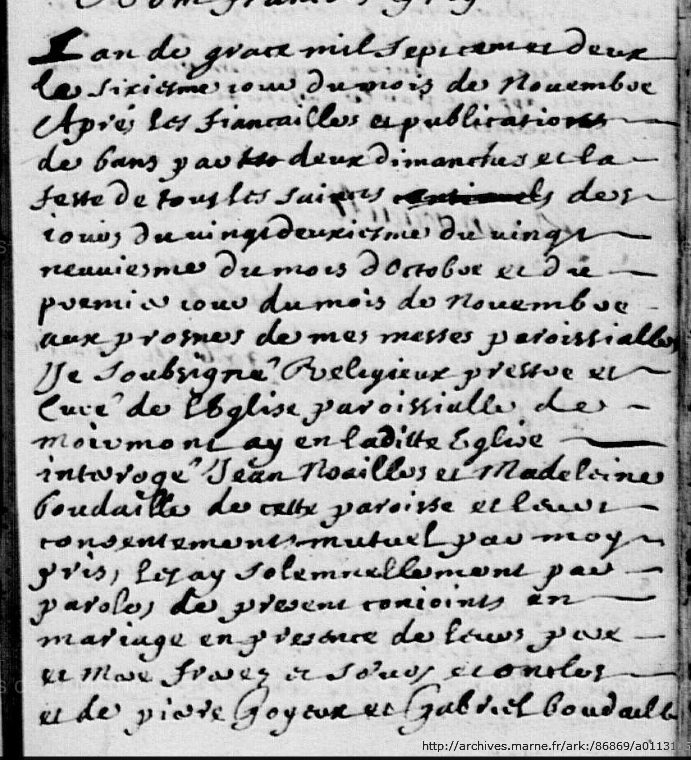 Lan de grace mil sept cent et deux
le sixiesme jour du mois de Novembre
Apres les fiancailles et publications
de bans par deux dimanches et la
feste de tous les saincts des
jours du vingtdeuxiesme du vingt
neuviesme du mois dOctobre et du
premie jour du mois de Novembre
aux prosnes de mes messes paroissialles
Je soubsigné Relegieux prestre et
Curé de lEglise paroissialle de
moirmont ay en laditte Eglise
interogé Jean Noailles et Madeleine
boudaille de cette paroisse et leurs
consentements mutuel par moy
pris, les ay solemnellement par
paroles de present conjoints en
mariage en presence de leurs pere
et mere freres et soeurs et oncles
et de piere Goyeux et Gabriel boudaille
http://archives.marne.fr/ark:/86869/a01131